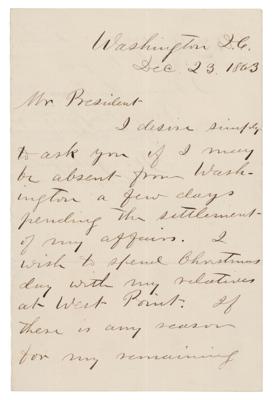 Washington D.C.
Dec 23. 1863
Mr. President
I desire simply
to ask you if I may
be absent from Wash-
ington a few days
pending the settlement
of my affairs. I
wish to spend Christmas
day with my relatives
at West Point. If
there is any reason
for my remaining